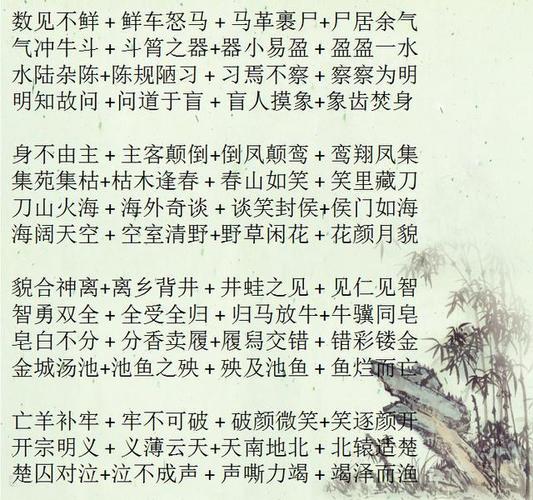 数见不鲜+鲜车怒马+马革裹尸+尸居余气
气冲牛斗+斗筲之器+器小易盈+盈盈一水
水陆杂陈+陈规陋习+习焉不察+察察为明
明知故问+问道于盲+盲人摸象+象齿焚身
身不由主+主客颠倒+倒凤颠鸾+鸾翔凤集
集苑集枯+枯木逢春+春山如笑+笑里藏刀
刀山火海+海外奇谈+谈笑封侯+侯门如海
海阔天空+空室清野+野草闲花+花颜月貌
貌合神离+离乡背井+井蛙之见+见仁见智
智勇双全+全受全归+归马放牛+牛骥同皂
皂白不分+分香卖履+履舄交错+错彩镂金
金城汤池+池鱼之殃+殃及池鱼+鱼烂而亡
亡羊补牢+牢不可破+破颜微笑+笑逐颜开
开宗明义+义薄云天+天南地北+北辕适楚
楚囚对泣+泣不成声+声嘶力竭+竭泽而渔